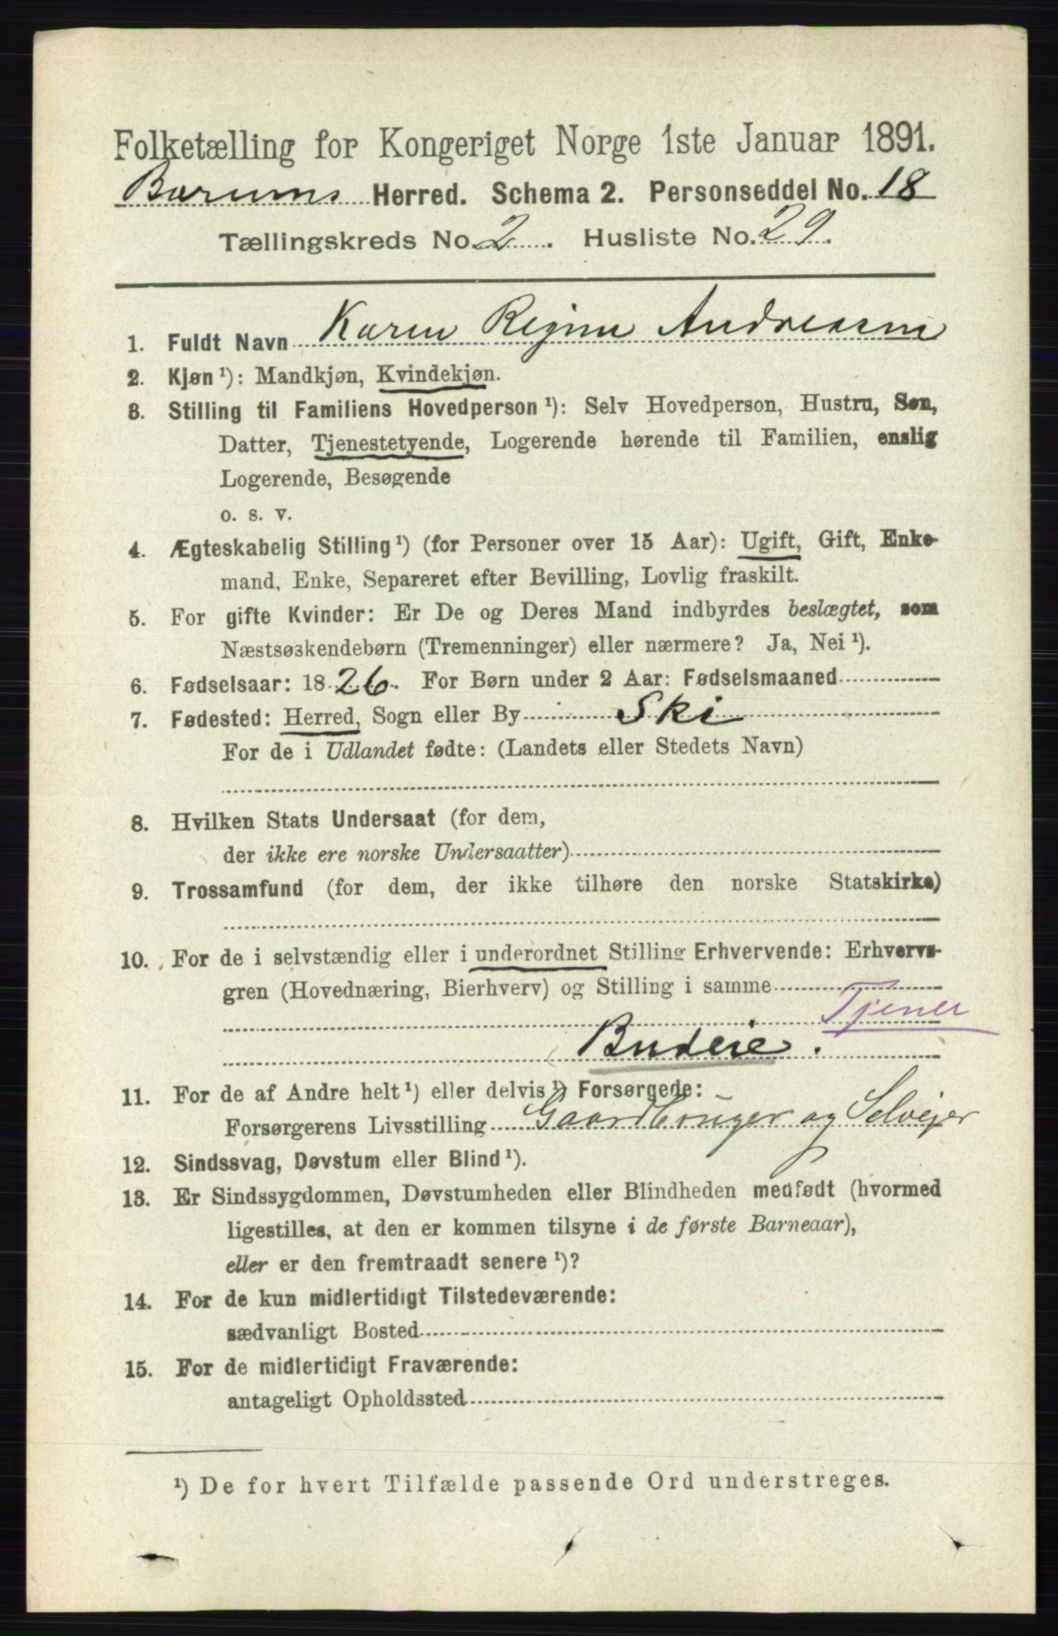 Folketælling for Kongeriget Norge 1ste Januar 1891.
Bærums Herred. Schema 2. Personseddel No. 18
Tællingskreds No. 2. Husliste No. 29.
1. Fuldt Navn Karen Regine Andreasen
2. Kjøn ¹): Mandkjøn, Kvindekjøn.
3. Stilling til Familiens Hovedperson ¹): Selv Hovedperson, Hustru, Søn,
Datter, Tjenestetyende, Logerende hørende til Familien, enslig
Logerende, Besøgende
o. s. v.
4. Ægteskabelig Stilling ¹) (for Personer over 15 Aar): Ugift, Gift, Enke-
mand, Enke, Separeret efter Bevilling, Lovlig fraskilt.
5. For gifte Kvinder: Er De og Deres Mand indbyrdes beslægtet, som
Næstsøskendebørn (Tremenninger) eller nærmere? Ja, Nei ¹).
6. Fødselsaar: 1826. For Børn under 2 Aar: Fødselsmaaned
7. Fødested: Herred, Sogn eller By Ski
For de i Udlandet fødte: (Landets eller Stedets Navn)
8. Hvilken Stats Undersaat (for dem,
der ikke ere norske Undersaatter)
9. Trossamfund (for dem, der ikke tilhøre den norske Statskirke)
10. For de i selvstændig eller i underordnet Stilling Erhvervende: Erhvervs-
gren (Hovednæring, Bierhverv) og Stilling i samme
Tjener
Budeie.
11. For de af Andre helt ¹) eller delvis ¹) Forsørgede:
Forsørgerens Livsstilling Gaardbruger og Selveier
12. Sindssvag, Døvstum eller Blind ¹).
13. Er Sindssygdommen, Døvstumheden eller Blindheden medfødt (hvormed
ligestilles, at den er kommen tilsyne i de første Barneaar),
eller er den fremtraadt senere ¹)?
14. For de kun midlertidigt Tilstedeværende:
sædvanligt Bosted
15. For de midlertidigt Fraværende:
antageligt Opholdssted
¹) De for hvert Tilfælde passende Ord understreges.